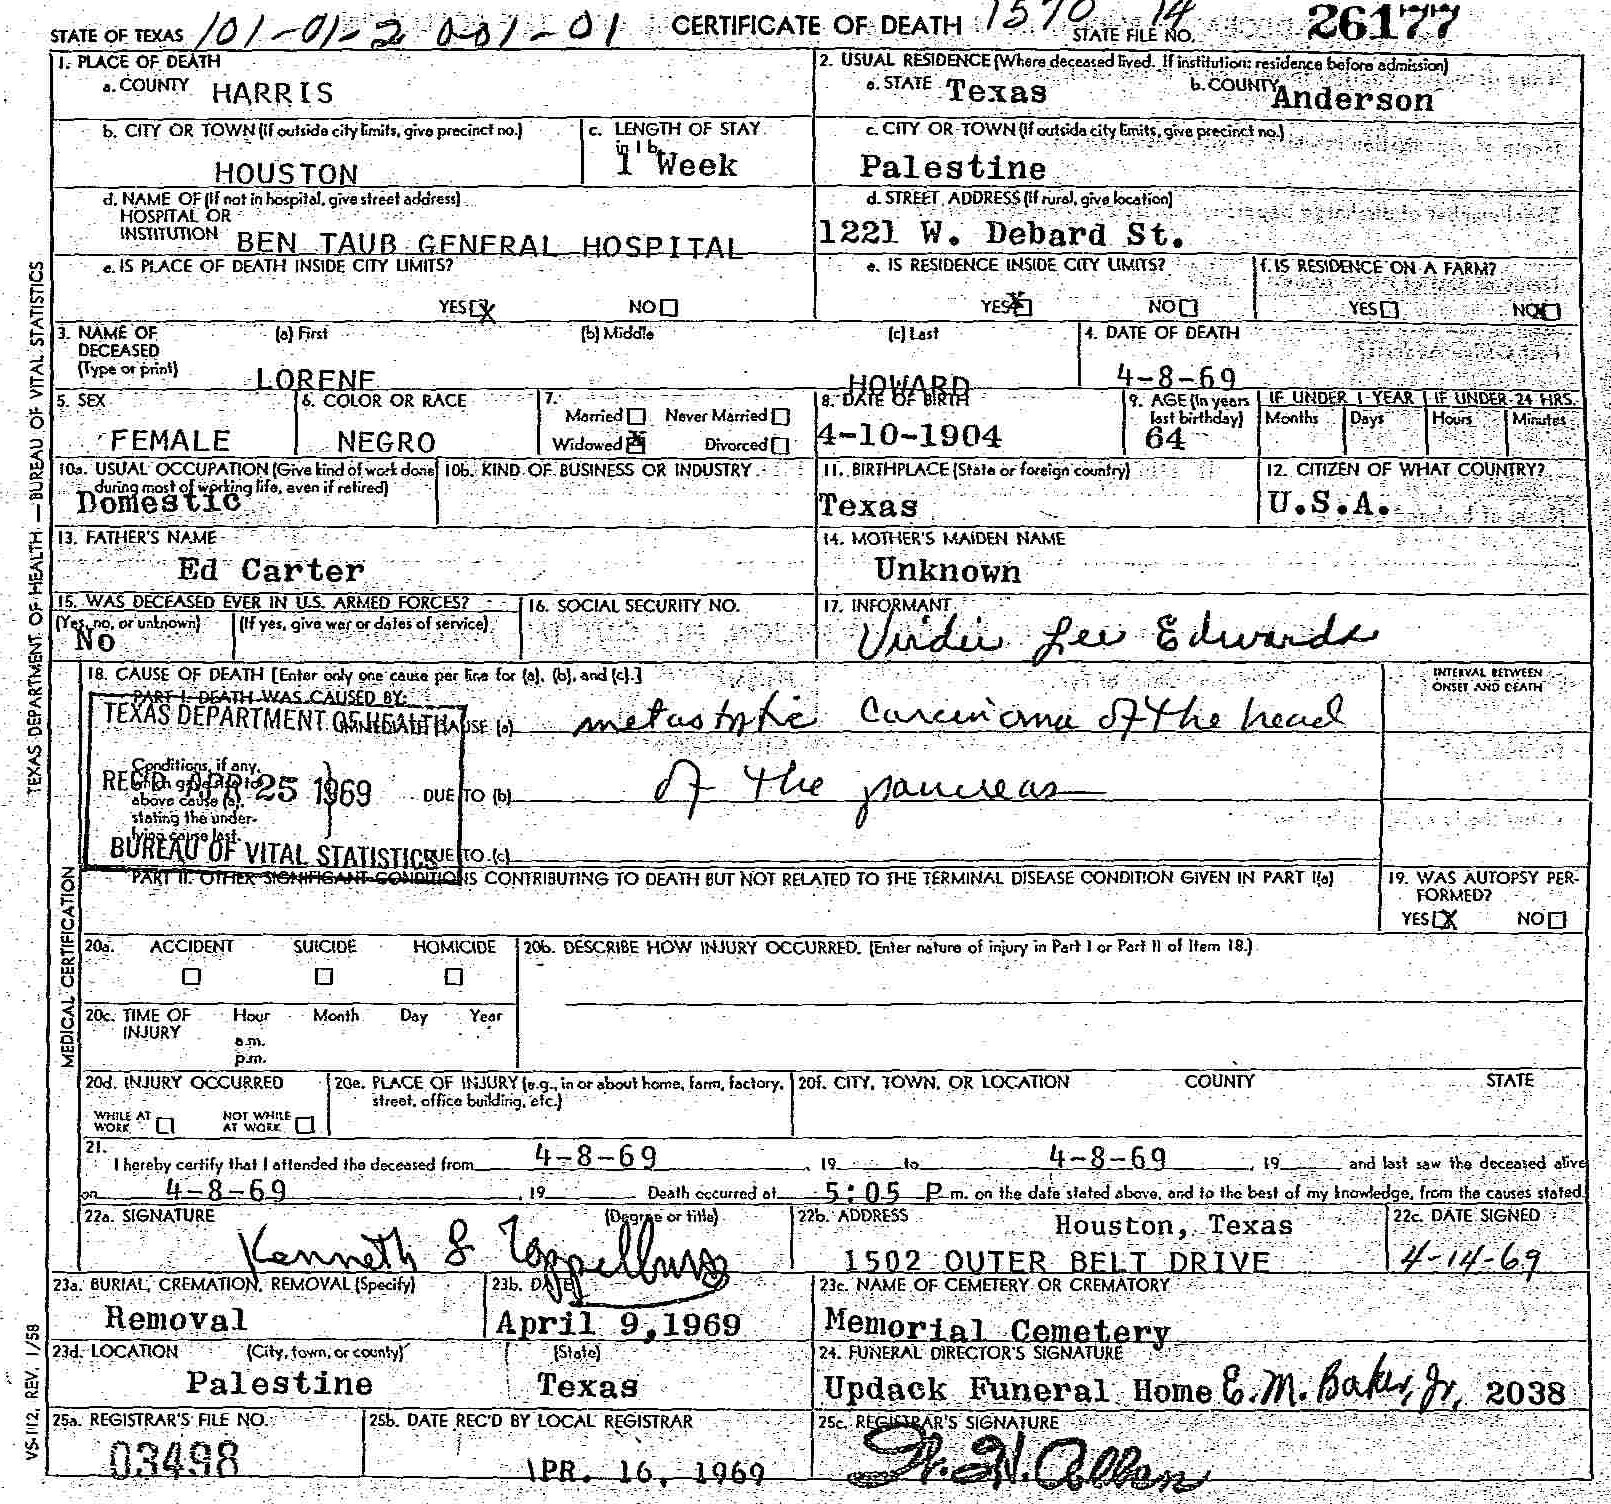 STATE OF TEXAS 101-01-2 001-01 CERTIFICATE OF DEATH 1570 14 STATE FILE NO. 26177
1. PLACE OF DEATH
a. COUNTY HARRIS
2. USUAL RESIDENCE (Where deceased lived. If institution: residence before admission)
a. STATE Texas b. COUNTY Anderson
b. CITY OR TOWN (If outside city limits, give precinct no.)
HOUSTON
c. LENGTH OF STAY in 1 b.
1 Week
c. CITY OR TOWN (If outside city limits, give precinct no.)
Palestine
d. NAME OF (If not in hospital, give street address)
HOSPITAL OR
INSTITUTION BEN TAUB GENERAL HOSPITAL
d. STREET ADDRESS (If rural, give location)
1221 W. Debard St.
e. IS PLACE OF DEATH INSIDE CITY LIMITS?
YES X NO
e. IS RESIDENCE INSIDE CITY LIMITS?
YES X NO
f. IS RESIDENCE ON A FARM?
YES NO X
3. NAME OF DECEASED (Type or print)
(a) First (b) Middle (c) Last
LORENE HOWARD
4. DATE OF DEATH
4-8-69
5. SEX
FEMALE
6. COLOR OR RACE
NEGRO
7.
Married Never Married
Widowed X Divorced
8. DATE OF BIRTH
4-10-1904
9. AGE (In years last birthday)
64
IF UNDER 1 YEAR IF UNDER 24 HRS.
Months Days Hours Minutes
10a. USUAL OCCUPATION (Give kind of work done during most of working life, even if retired)
Domestic
10b. KIND OF BUSINESS OR INDUSTRY
11. BIRTHPLACE (State or foreign country)
Texas
12. CITIZEN OF WHAT COUNTRY?
U.S.A.
13. FATHER'S NAME
Ed Carter
14. MOTHER'S MAIDEN NAME
Unknown
15. WAS DECEASED EVER IN U.S. ARMED FORCES?
(Yes, no, or unknown) (If yes, give war or dates of service)
No
16. SOCIAL SECURITY NO.
17. INFORMANT
Virdie Lee Edwards
18. CAUSE OF DEATH [Enter only one cause per line for (a), (b), and (c).]
INTERVAL BETWEEN ONSET AND DEATH
PART I. DEATH WAS CAUSED BY:
CAUSE (a) metastatic carcinoma of the head
Conditions, if any, which gave rise to above cause (a), stating the underlying cause last.
DUE TO (b) of the pancreas
DUE TO (c)
TEXAS DEPARTMENT OF HEALTH
REC'D APR 25 1969
BUREAU OF VITAL STATISTICS
PART II. OTHER SIGNIFICANT CONDITIONS CONTRIBUTING TO DEATH BUT NOT RELATED TO THE TERMINAL DISEASE CONDITION GIVEN IN PART I(a)
19. WAS AUTOPSY PERFORMED?
YES X NO
20a. ACCIDENT SUICIDE HOMICIDE
20b. DESCRIBE HOW INJURY OCCURRED. (Enter nature of injury in Part I or Part II of Item 18.)
20c. TIME OF INJURY Hour Month Day Year
a.m.
p.m.
20d. INJURY OCCURRED
WHILE AT WORK NOT WHILE AT WORK
20e. PLACE OF INJURY (e.g., in or about home, farm, factory, street, office building, etc.)
20f. CITY, TOWN, OR LOCATION COUNTY STATE
21.
I hereby certify that I attended the deceased from 4-8-69, 19 to 4-8-69, 19 and last saw the deceased alive
on 4-8-69, 19 Death occurred at 5:05 P m. on the date stated above, and to the best of my knowledge, from the causes stated.
22a. SIGNATURE (Degree or title)
Kenneth
22b. ADDRESS Houston, Texas
1502 OUTER BELT DRIVE
22c. DATE SIGNED
4-14-69
23a. BURIAL, CREMATION, REMOVAL (Specify)
Removal
23b. DATE
April 9, 1969
23c. NAME OF CEMETERY OR CREMATORY
Memorial Cemetery
23d. LOCATION (City, town, or county) (State)
Palestine Texas
24. FUNERAL DIRECTOR'S SIGNATURE
Updack Funeral Home E. M. Baker, Jr., 2038
25a. REGISTRAR'S FILE NO.
03498
25b. DATE REC'D BY LOCAL REGISTRAR
APR. 16, 1969
25c. REGISTRAR'S SIGNATURE
TEXAS DEPARTMENT OF HEALTH — BUREAU OF VITAL STATISTICS
MEDICAL CERTIFICATION
VS-112, REV. 1/58